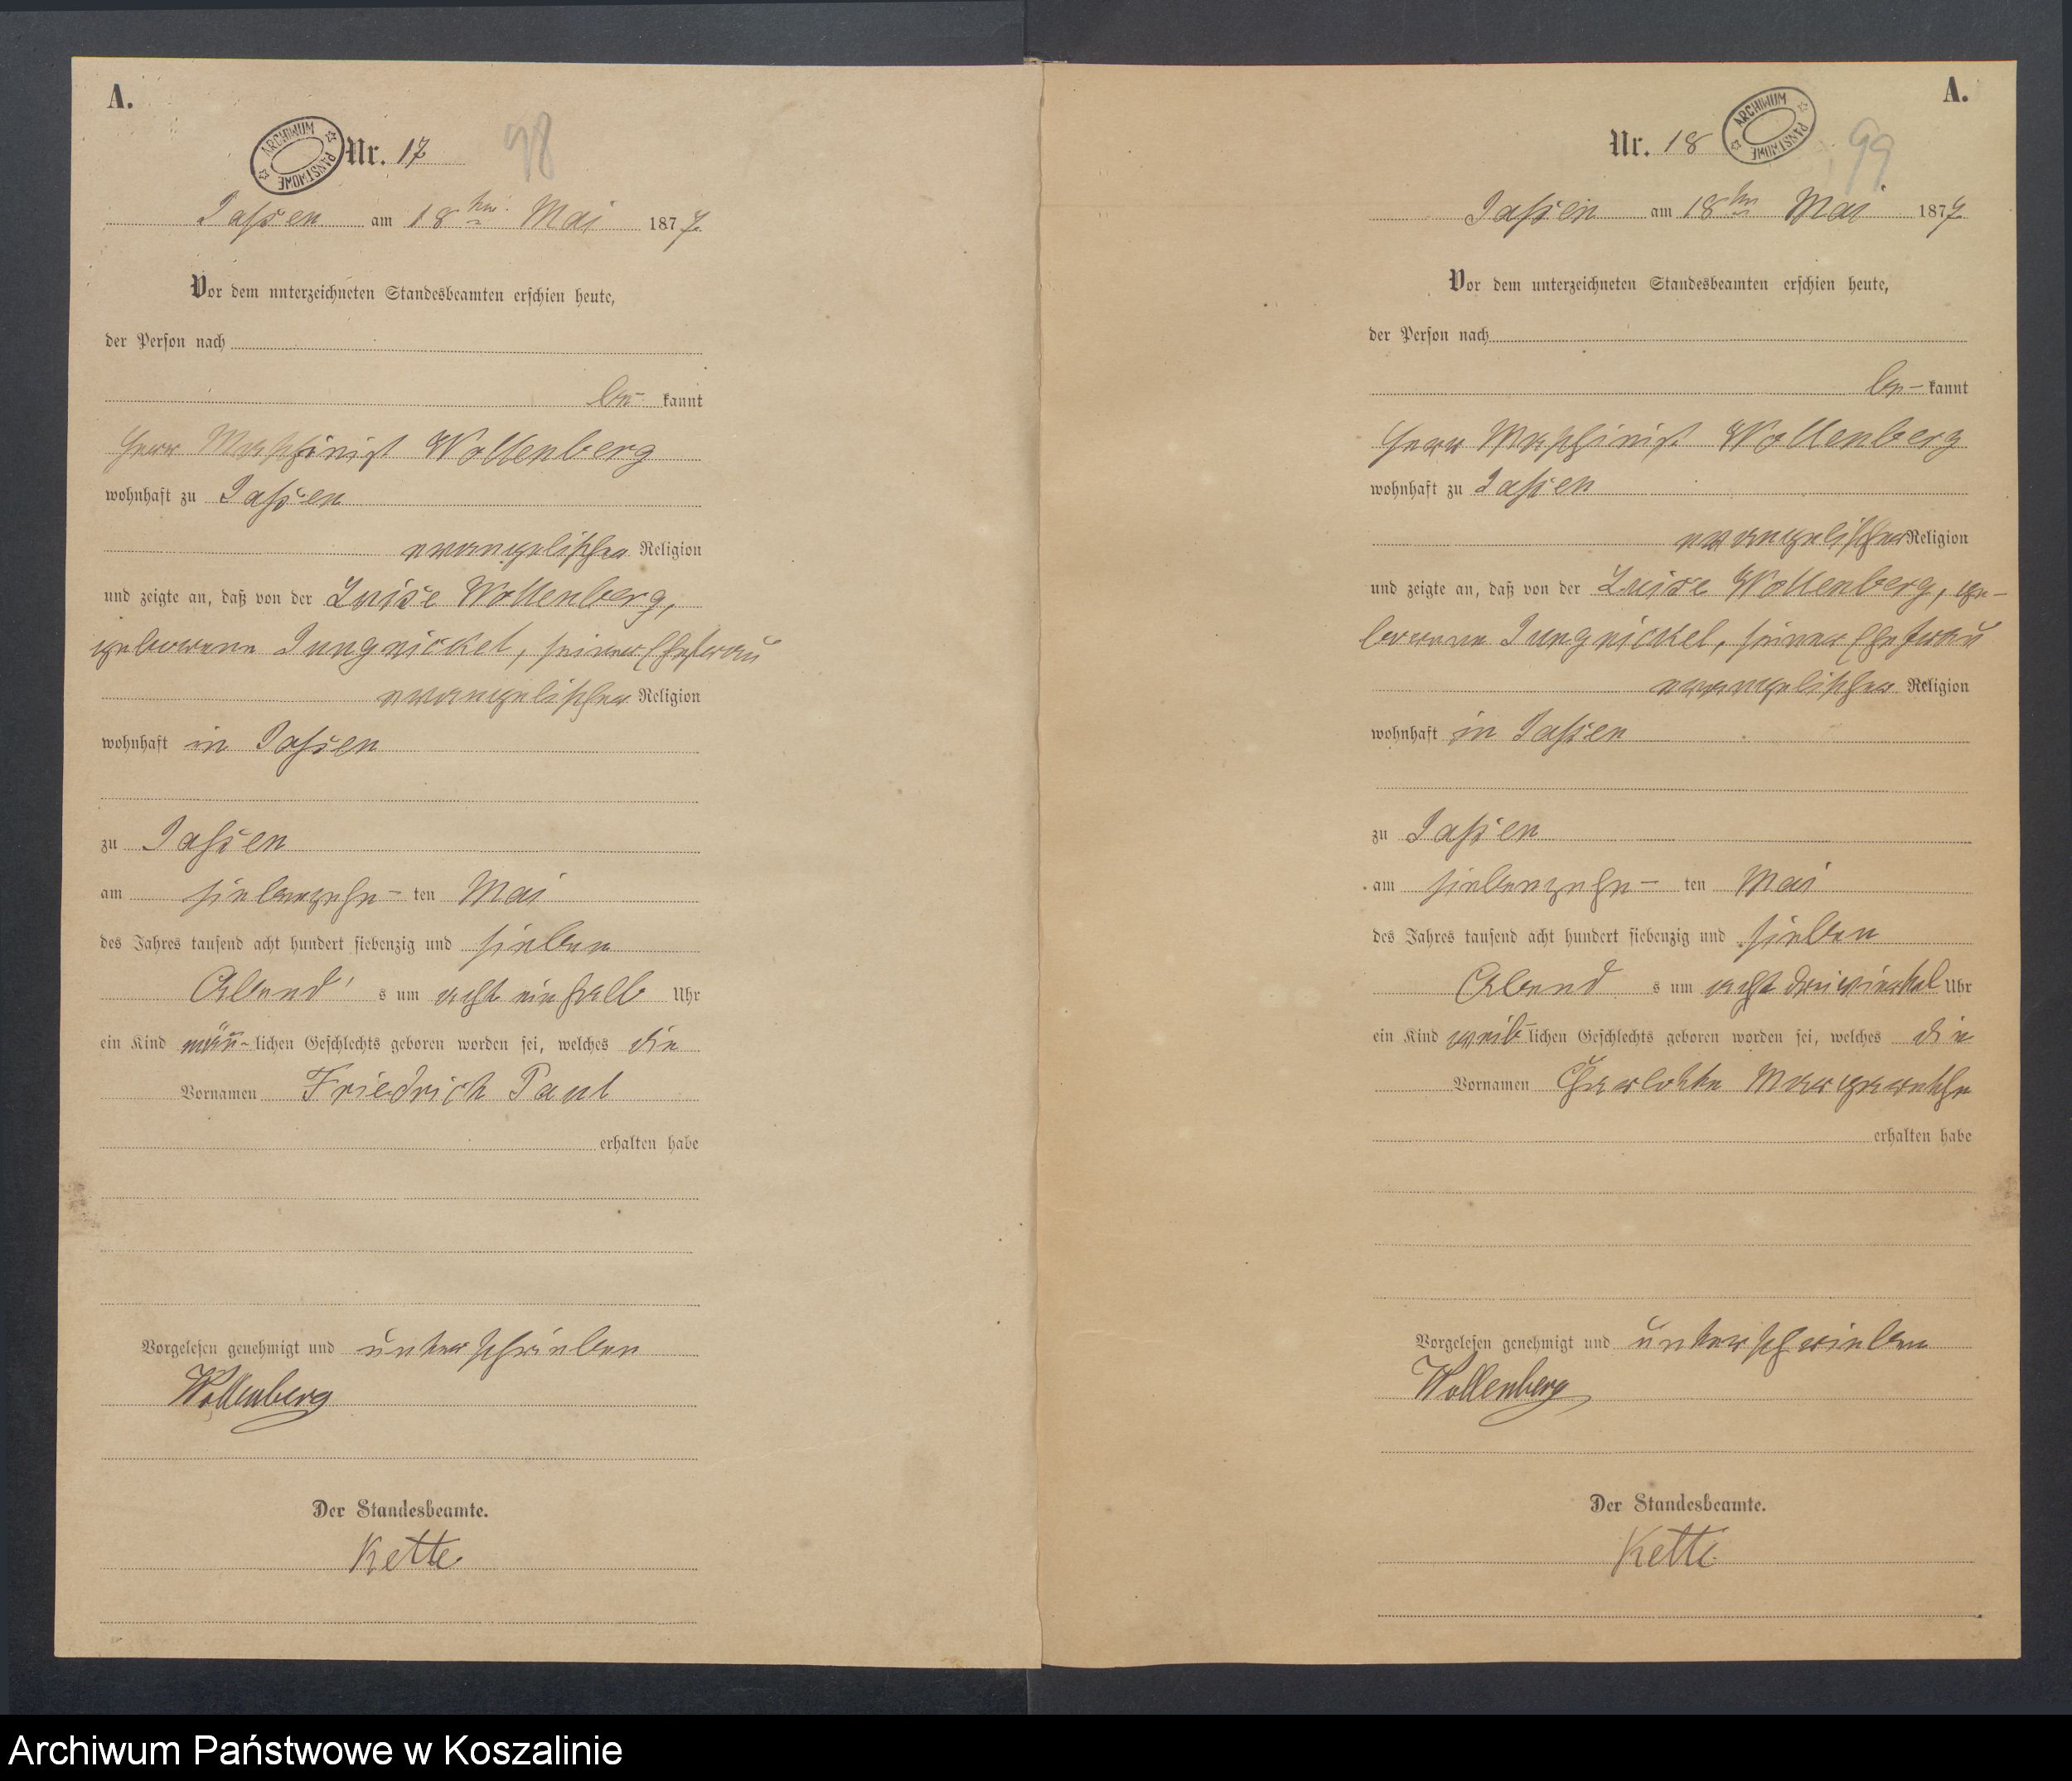 A.
ARCHIWUM PAŃSTWOWE
Nr. 17
98
Jassen am 18ten Mai 1877
Vor dem unterzeichneten Standesbeamten erschien heute,
der Person nach
be- kannt
Herr Maschinist Wollenberg
wohnhaft zu Jassen
evangelischer Religion
und zeigte an, daß von der Luise Wollenberg,
geborene Jungnickel, seiner Ehefrau
evangelischer Religion
wohnhaft in Jassen
zu Jassen
am siebenzehn- ten Mai
des Jahres tausend acht hundert siebenzig und sieben
Abend s um acht einhalb Uhr
ein Kind män- lichen Geschlechts geboren worden sei, welches die
Vornamen Friedrich Paul
erhalten habe
Vorgelesen genehmigt und unterschrieben
Wollenberg
Der Standesbeamte.
Kette
A.
Nr. 18
ARCHIWUM PAŃSTWOWE
99
Jassen am 18ten Mai 1877
Vor dem unterzeichneten Standesbeamten erschien heute,
der Person nach
be- kannt
Herr Maschinist Wollenberg
wohnhaft zu Jassen
evangelischer Religion
und zeigte an, daß von der Luise Wollenberg, ge-
borene Jungnickel, seiner Ehefrau
evangelischer Religion
wohnhaft in Jassen
zu Jassen
am siebenzehn- ten Mai
des Jahres tausend acht hundert siebenzig und sieben
Abend s um acht dreiviertel Uhr
ein Kind weib- lichen Geschlechts geboren worden sei, welches die
Vornamen Charlotte Margarethe
erhalten habe
Vorgelesen genehmigt und unterschrieben
Wollenberg
Der Standesbeamte.
Kette
Archiwum Państwowe w Koszalinie